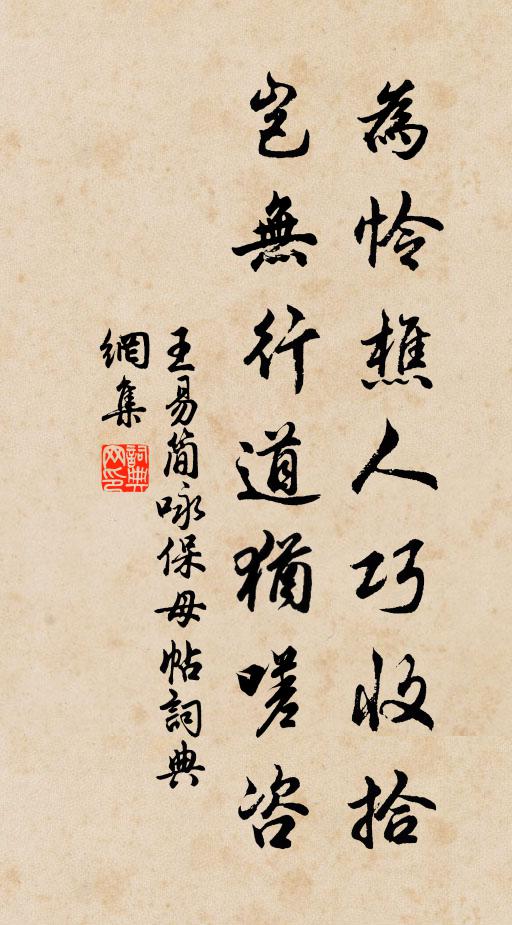 為怜樵人巧收拾
豈無行道猶嗟咨
王易簡咏保母帖詞典
網集
詞典網印